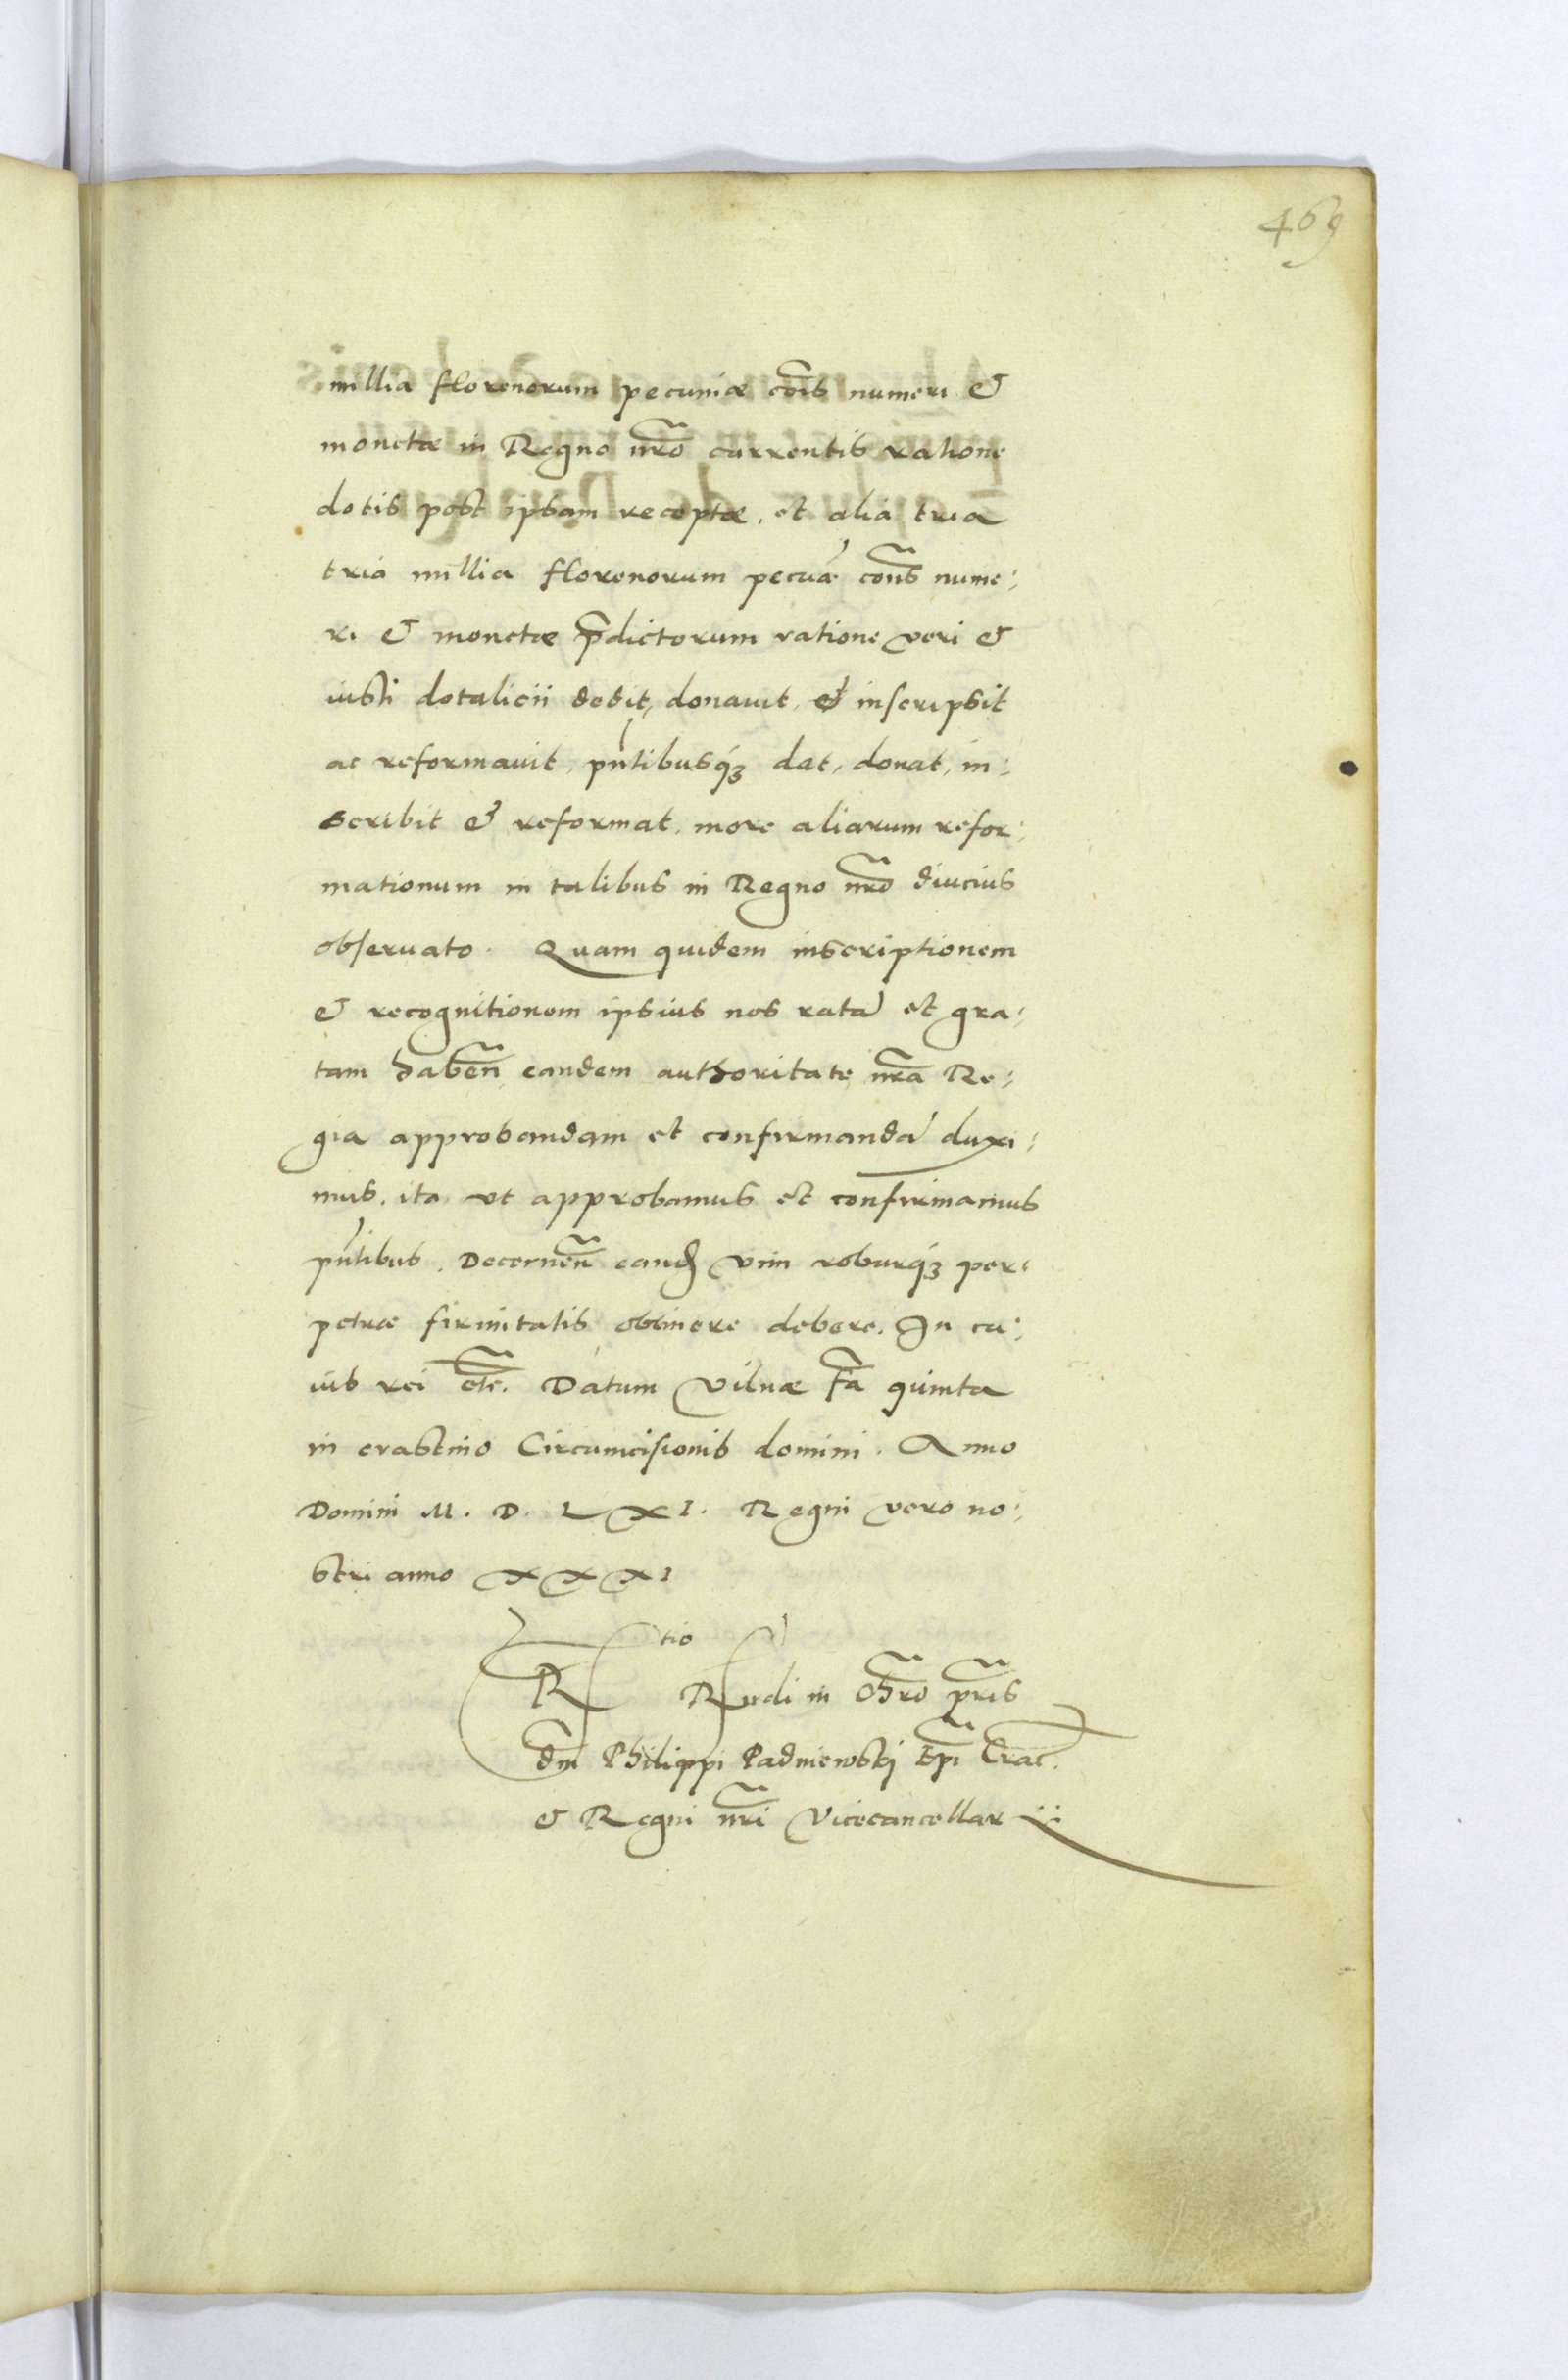 469
millia florenorum pecuniæ cõis numeri &
monetæ in Regno nr̃o currentis ratione
dotis post ipsam receptæ, et alia tria
tria millia florenorum pecuæ cõis nume:
ri & monetæ p̃dictorum ratione veri &
iusti dotalicii dedit, donauit, & inscripsit
ac reformauit, pñtibusq́ꝫ dat, donat, in:
scribit & reformat, more aliarum refor:
mationum in talibus in Regno nr̃o diucius
obseruato. Quam quidem inscriptionem
& recognitionem ipsius nos ratã et gra:
tam habeñ eandem authoritate nr̃a Re:
gia approbandam et confirmandã duxi:
mus, ita vt approbamus et confirmamus
pñtibus. Decerneñ eand vim roburq́ꝫ per:
petuæ firmitatis obtinere debere. In cu:
ius rei etc̃. Datum Vilnæ fr̃a quinta
in crastino Circumcisionis domini. Anno
Domini M. D. LXI. Regni vero no:
stri anno XXXI
tio
R Rndi in Chr̃o pr̃is
dñi Philippi Padniewskj Ep̃i Crac.
& Regni nr̃i Vicecancellar